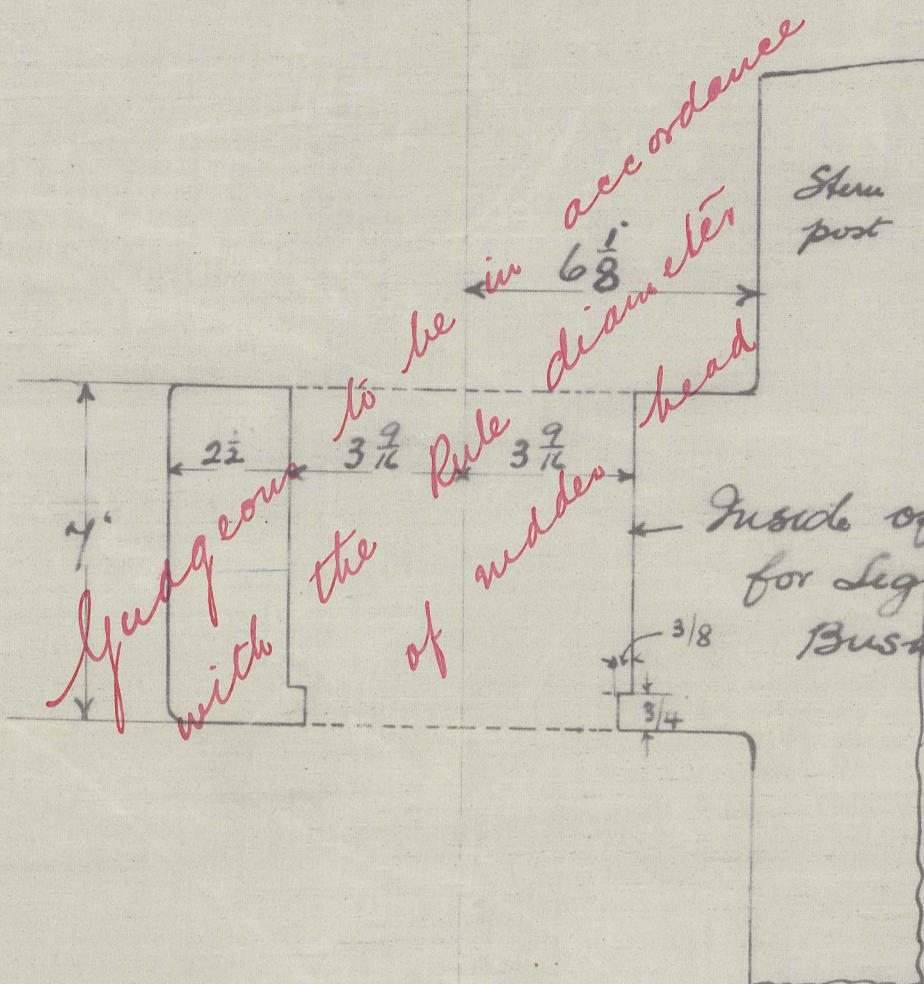 Gudgeons to be in accordance
with the Rule diameter
of rudder head
Stern
post
6 1/8"
2 1/2
3 9/16
3 9/16
7"
Inside of
for Lig
Bush
3/8
3/4